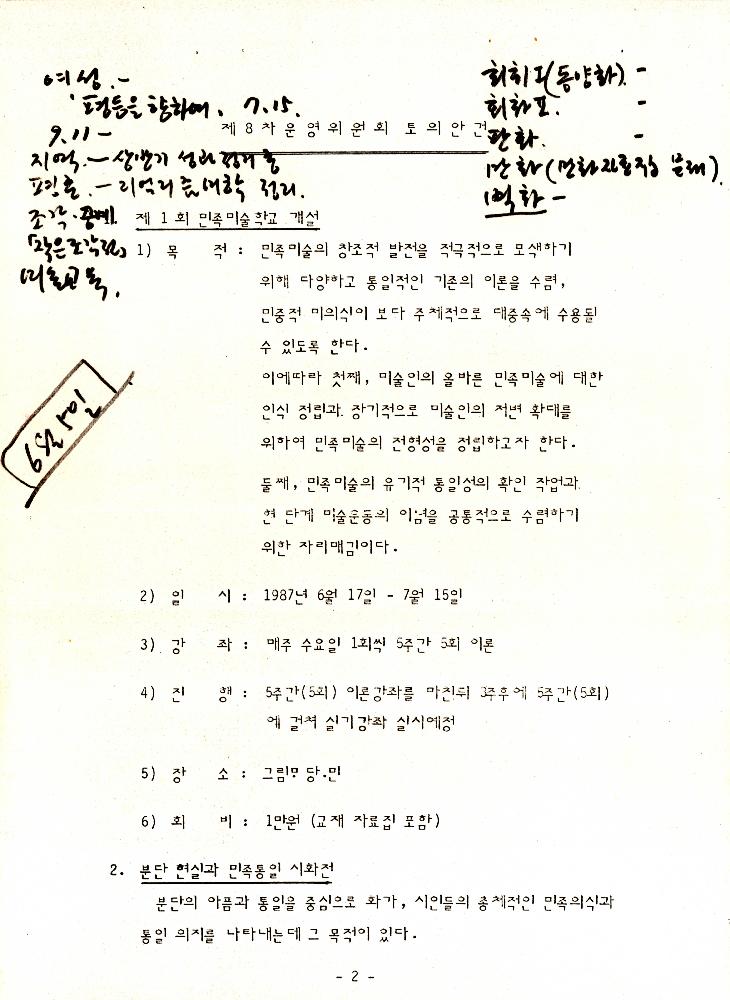 여성. -
평등을 향하여, 7.15.
9.11 -
지역. - 상반기 성과
조각·공예.
「작은조각전」
미술교육,
회화 (동양화). -
회화
판화. -
만화 (만화자료
벽화 -
6월 5일
제 8 차 운 영 위 원 회 토 의 안 건
제 1 회 민족미술학교 개설
1) 목 적 : 민족미술의 창조적 발전을 적극적으로 모색하기
위해 다양하고 통일적인 기존의 이론을 수렴,
민중적 미의식이 보다 주체적으로 대중속에 수용될
수 있도록 한다.
이에따라 첫째, 미술인의 올바른 민족미술에 대한
인식 정립과 장기적으로 미술인의 저변 확대를
위하여 민족미술의 전형성을 정립하고자 한다.
둘째, 민족미술의 유기적 통일성의 확인 작업과
현 단계 미술운동의 이념을 공통적으로 수렴하기
위한 자리매김이다.
2) 일 시 : 1987년 6월 17일 - 7월 15일
3) 강 좌 : 매주 수요일 1회씩 5주간 5회 이론
4) 진 행 : 5주간(5회) 이론강좌를 마친뒤 3주후에 5주간(5회)
에 걸쳐 실기강좌 실시예정
5) 장 소 : 그림마당.민
6) 회 비 : 1만원 (교재 자료집 포함)
2. 분단 현실과 민족통일 시화전
분단의 아픔과 통일을 중심으로 화가, 시인들의 총체적인 민족의식과
통일 의지를 나타내는데 그 목적이 있다.
- 2 -